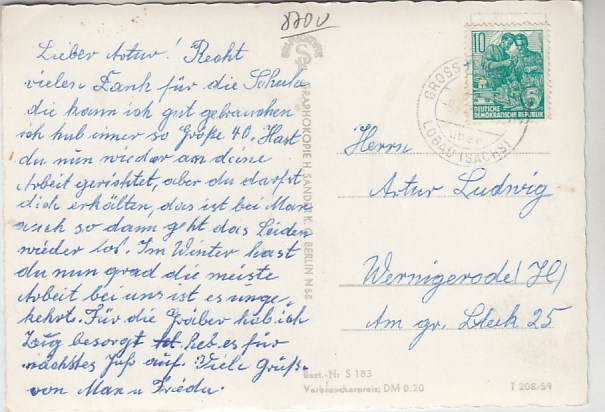 870V
Lieber Artur! Recht
vielen Dank für die Schuhe
die kann ich gut gebrauchen
ich hab immer so Größe 40. Hast
du nun wieder an deine
Arbeit gerichtet, aber du darfst
dich erkälten, das ist bei Max
auch so dann geht das Leiden
wieder los. Im Winter hast
du nun grad die meiste
Arbeit bei uns ist es umge-
kehrt. Für die Gräber hab ich
Zeug besorgt heb es für
nächstes Jahr auf. Viele Grüße
von Max u Frieda.
GRAPHOKOPIE H. SANDER K. G. BERLIN N 58
10
DEUTSCHE
DEMOKRATISCHE REPUBLIK
5
GROSS
über
LÖBAU (SACHS)
Herrn
Artur Ludwig
Wernigerode/H/
Am gr. Bleek 25
Best.-Nr S 183
Verbraucherpreis: DM 0.20
T 208/59